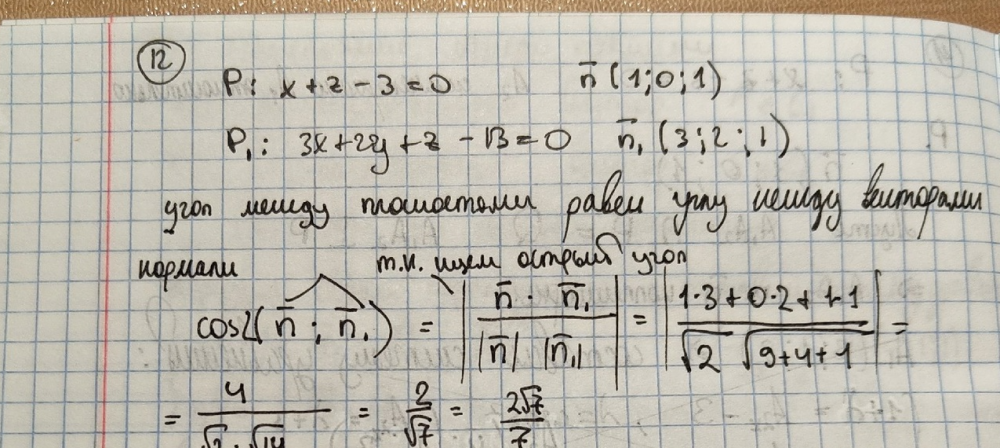 12
P: x + z − 3 = 0 n̅ (1; 0; 1)
P₁: 3x + 2y + z − 13 = 0 n̅₁ (3; 2; 1)
угол между плоскостями равен углу между векторами
нормали т.к. ищем острый угол
cos∠(n̅; n̅₁) = |n̅ · n̅₁ / |n̅| |n̅₁|| = |1·3 + 0·2 + 1·1 / √2 √(9+4+1)| =
= 4 / √2 · √14 = 2/√7 = 2√7/7